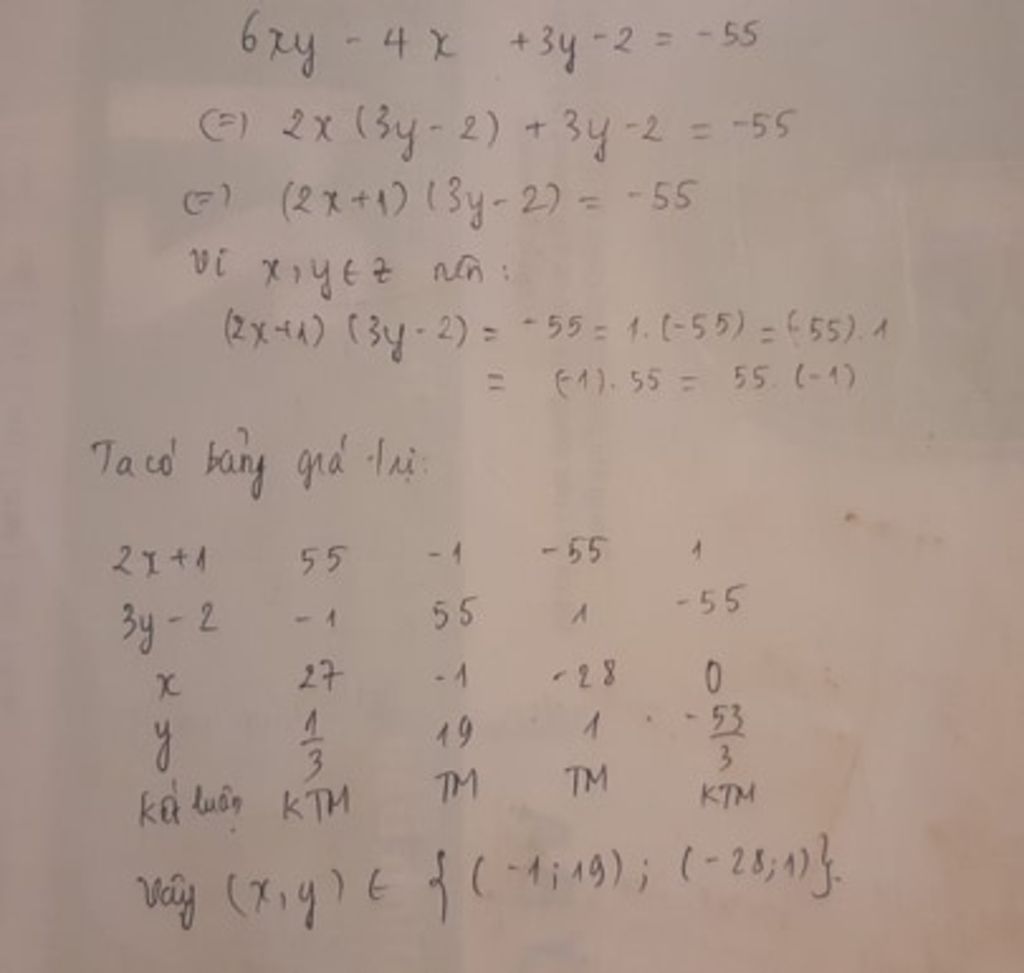 6xy - 4x + 3y - 2 = -55
(=) 2x (3y - 2) + 3y - 2 = -55
(=) (2x+1) (3y - 2) = -55
Vì x, y ∈ Z nên :
(2x+1) (3y - 2) = -55 = 1. (-55) = (-55). 1
= (-1). 55 = 55. (-1)
Ta có bảng giá trị:
2x+1 55 -1 -55 1
3y - 2 -1 55 1 -55
x 27 -1 -28 0
y 1/3 19 1 -53/3
Kết luận KTM TM TM KTM
Vậy (x, y) ∈ { (-1; 19) ; (-28; 1)}.